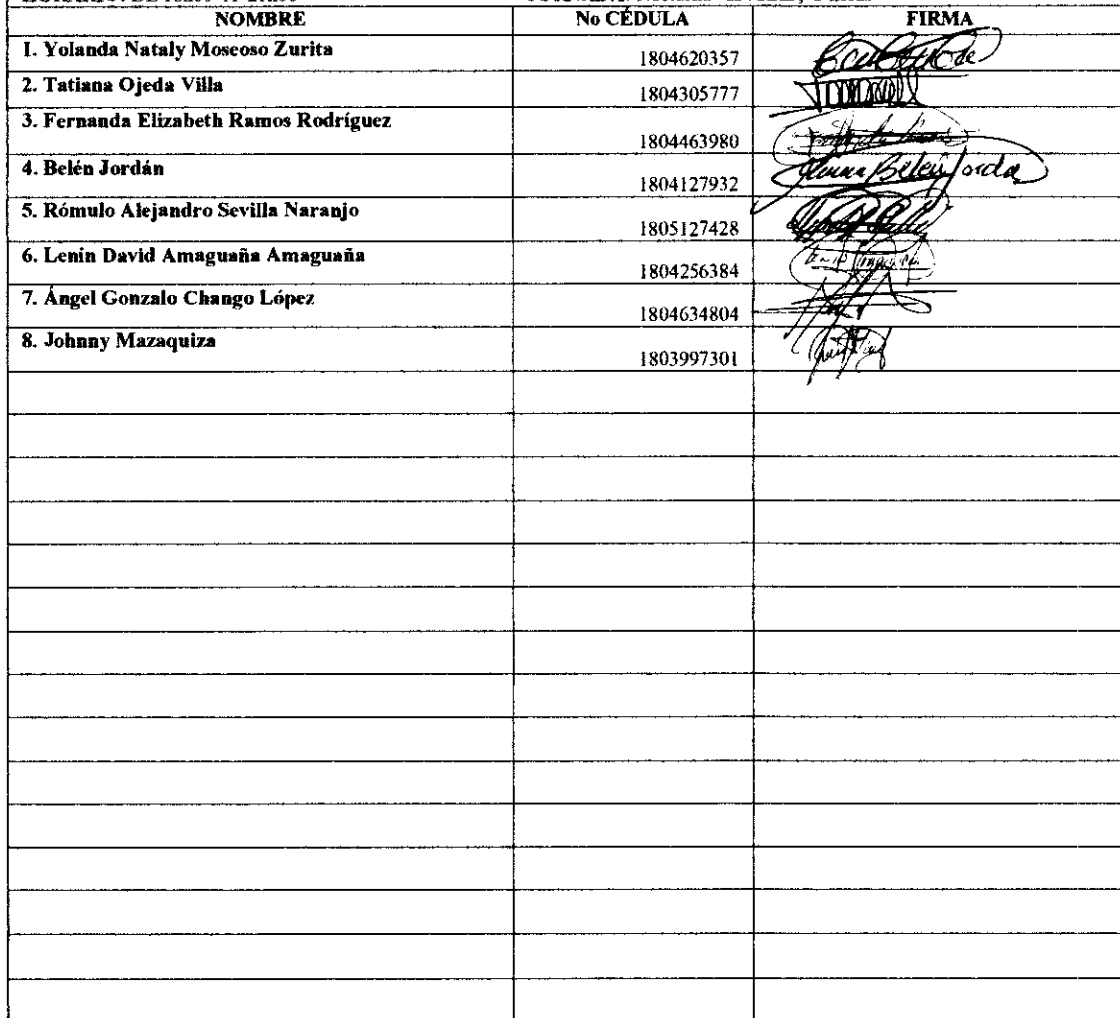 NOMBRE No CÉDULA FIRMA
1. Yolanda Nataly Moscoso Zurita 1804620357
2. Tatiana Ojeda Villa 1804305777
3. Fernanda Elizabeth Ramos Rodríguez 1804463980
4. Belén Jordán 1804127932 Belén Jordán
5. Rómulo Alejandro Sevilla Naranjo 1805127428
6. Lenin David Amaguaña Amaguaña 1804256384
7. Ángel Gonzalo Chango López 1804634804
8. Johnny Mazaquiza 1803997301